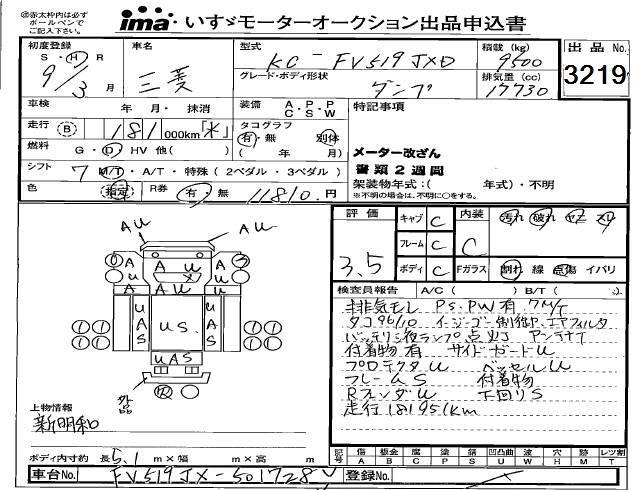 ㊟赤太枠内は必ず
ボールペンで
ご記入下さい。
ima・いすゞモーターオークション出品申込書
初度登録 S・H・R 9/3月
車名 三菱
型式 KC-FV519JXD
積載(kg) 9500
出品No. 3219
グレード・ボディ形状 ダンプ
排気量(cc) 17730
車検 年・月・抹消
装備 A・P・P C・S・W
特記事項
走行 B 181000km *
タコグラフ 有・無 別体 ( 年 月)
メーター改ざん
書類2週間
燃料 G・D・HV 他( )
シフト 7 M/T・A/T・特殊(2ペダル・3ペダル)
架装物年式:( 年式)・不明
※不明の場合は、不明に○をする。
色 指定 R券 有 無 11810円
評価 3.5
キャブ C
フレーム C
ボディ C
内装 C
汚れ 破れ ヤケ スリ
Fガラス 割れ 線 点傷 イバリ
AU AU
A A U A
A A U A
U A S U S U A S
U A S
外品
検査員報告 A/C( ) B/T( )
排気モレ PS.PW有 7M/T
タコ96/10
バッテリ液ランプ点灯 アンテナT
付着物有 サイドガードU
プロテクタU ベッセルU
フレームS 付着物
RフェンダU 下回りS
走行181951km
上物情報
新明和
ボディ内寸約 長5.1m×幅 m×高 m
記号 傷A 板金B 腐C 塗P 錆S 凹凸曲U 波W 穴H 跡M レツ割T
車台No. FV519JX-501728
登録No.